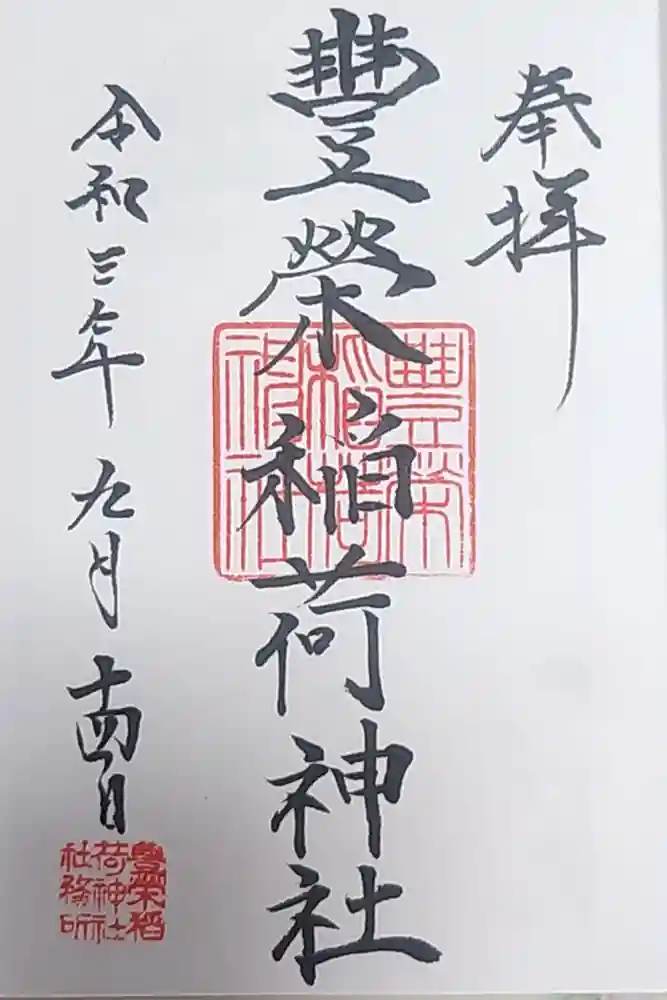 奉拝
豐榮稲荷神社
豐榮稲荷神社
令和三年九月十四日
豐榮稲荷神社社務所